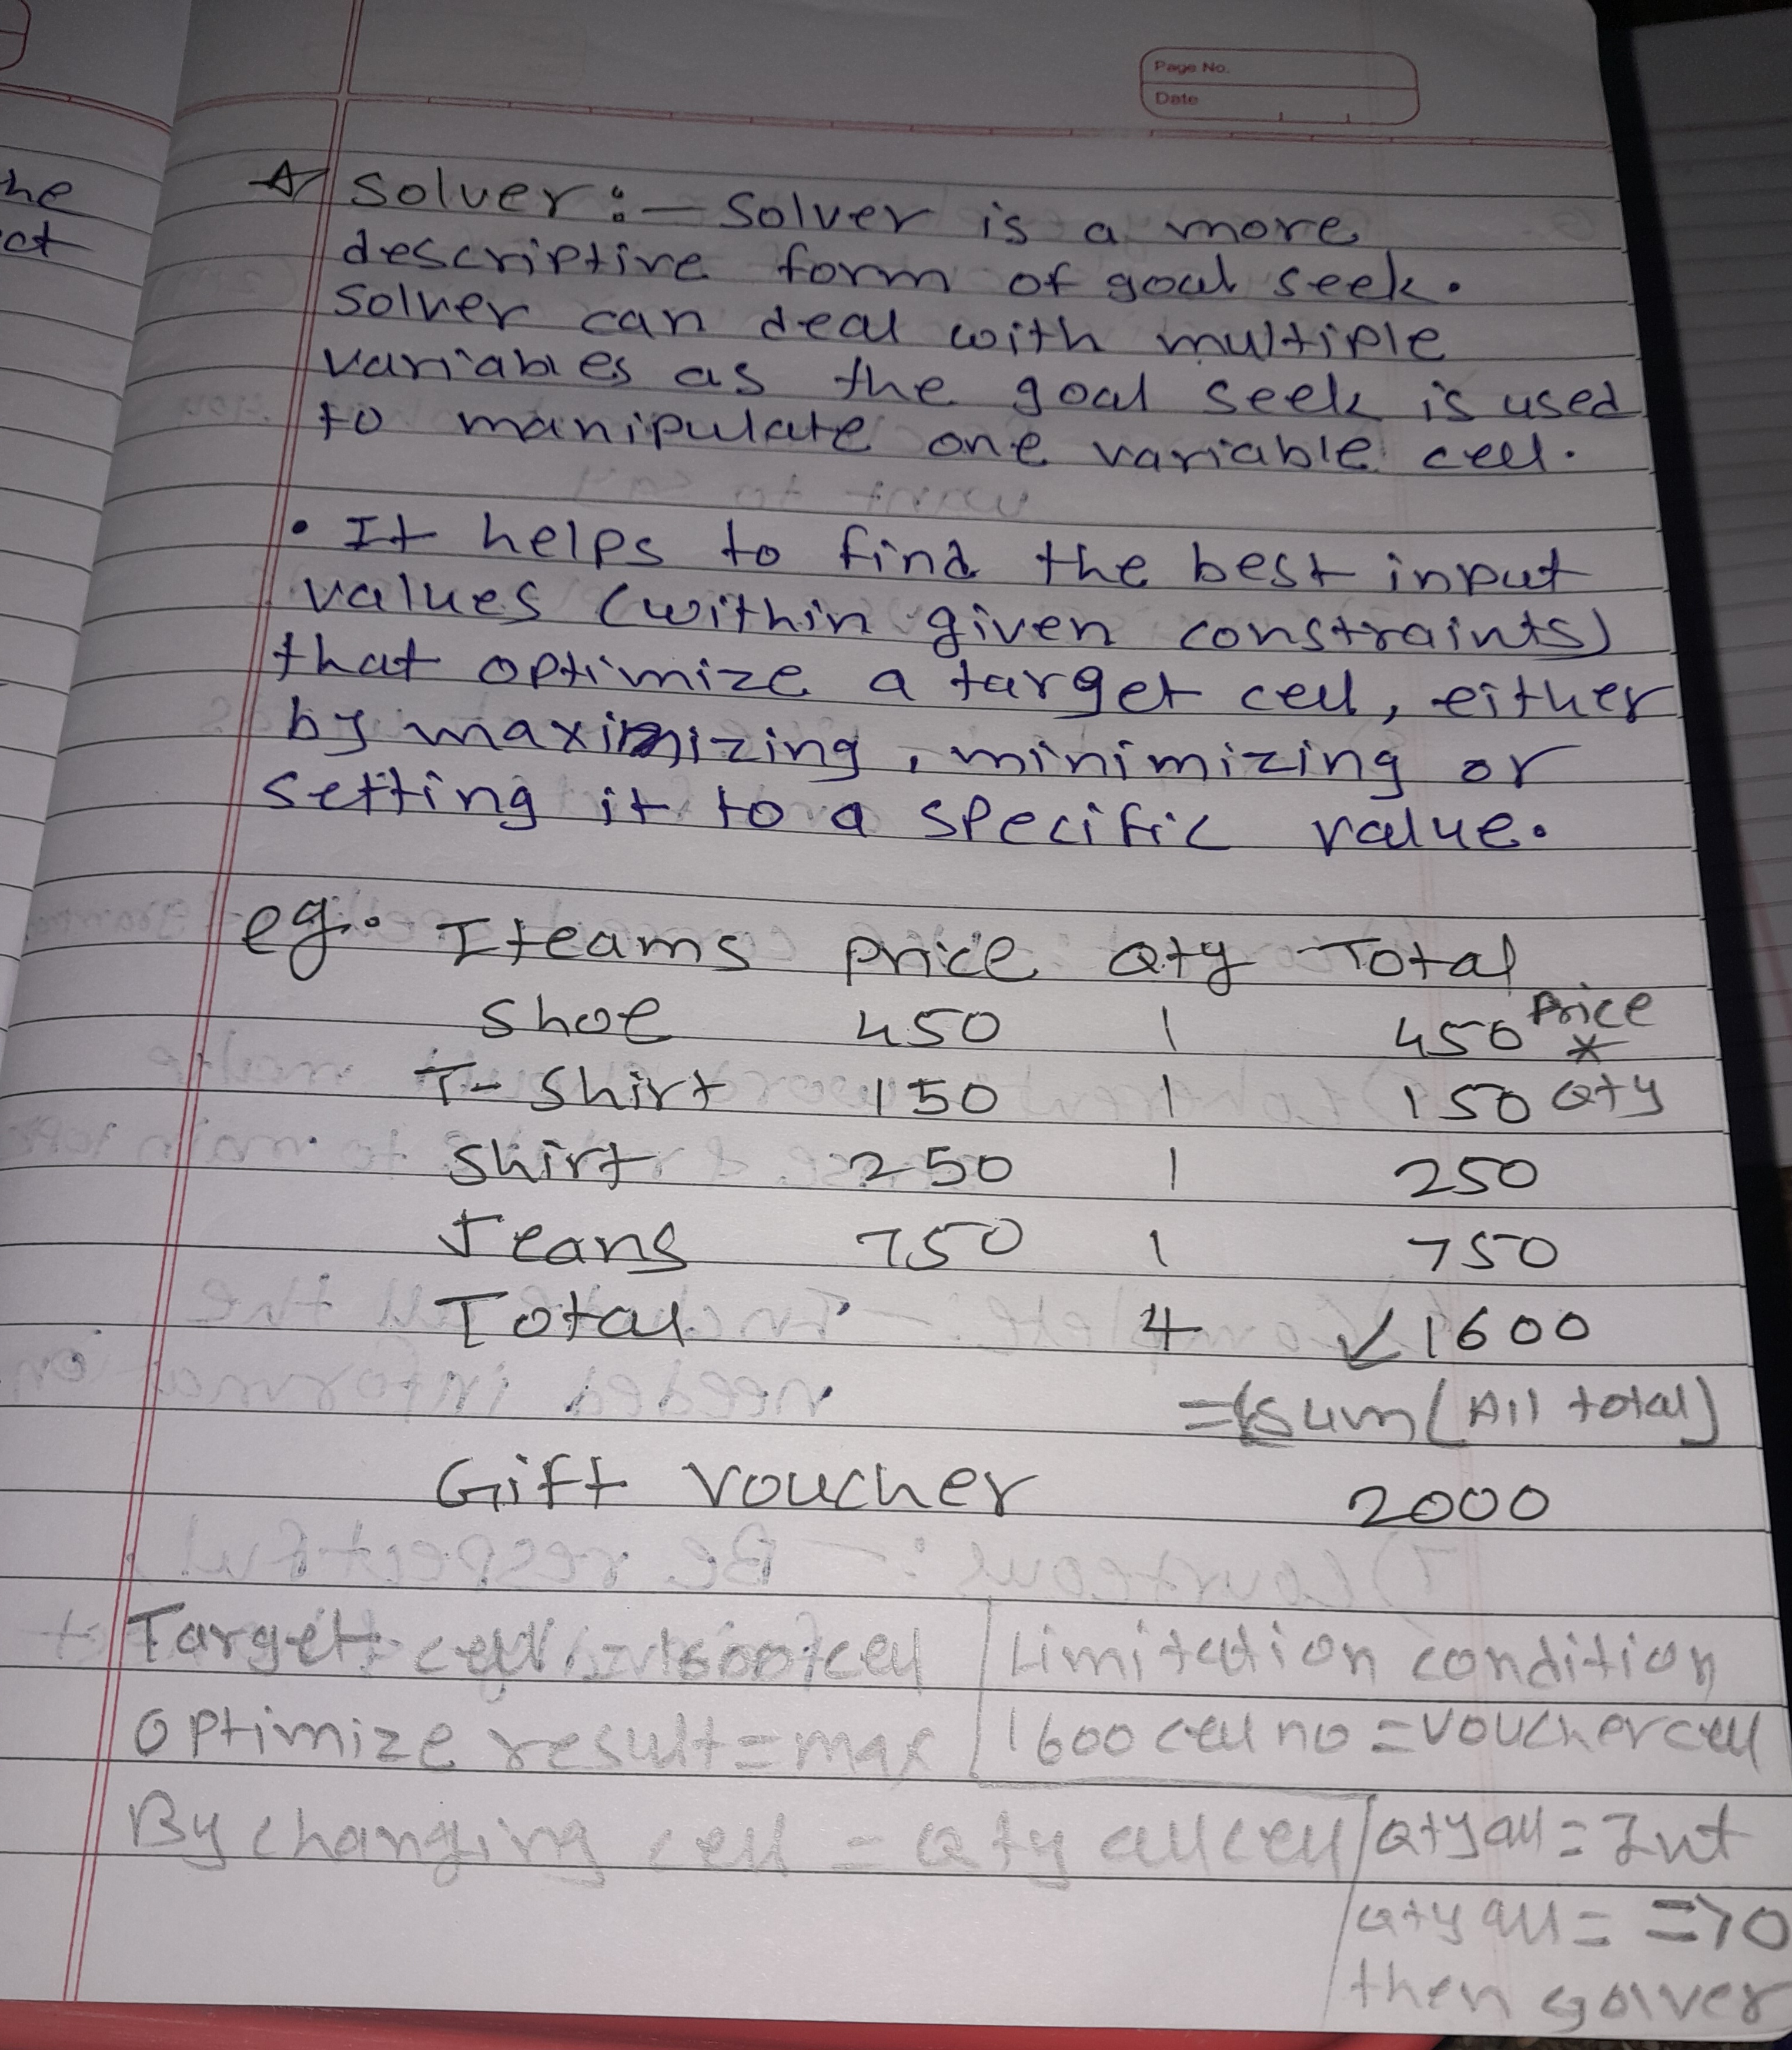 Page No.
Date
he
ct
Solver :- Solver is a more
descriptive form of goal seek.
Solver can deal with multiple
variables as the goal seek is used
to manipulate one variable cell.
• It helps to find the best input
values (within given constraints)
that optimize a target cell, either
by maximizing, minimizing or
setting it to a specific value.
eg:. Iteams Price Qty Total
Shoe 450 1 450 Price
*
T-Shirt 150 1 150 Qty
Shirt 250 1 250
Jeans 750 1 750
Total 4 ✓ 1600
=(sum(All total)
Gift Voucher 2000
Target cell = 1600 cell | Limitation condition
Optimize result = max | 1600 cell no = Voucher cell
By changing cell = Qty all cell | Qty all = Int
Qty all = =>0
then solver